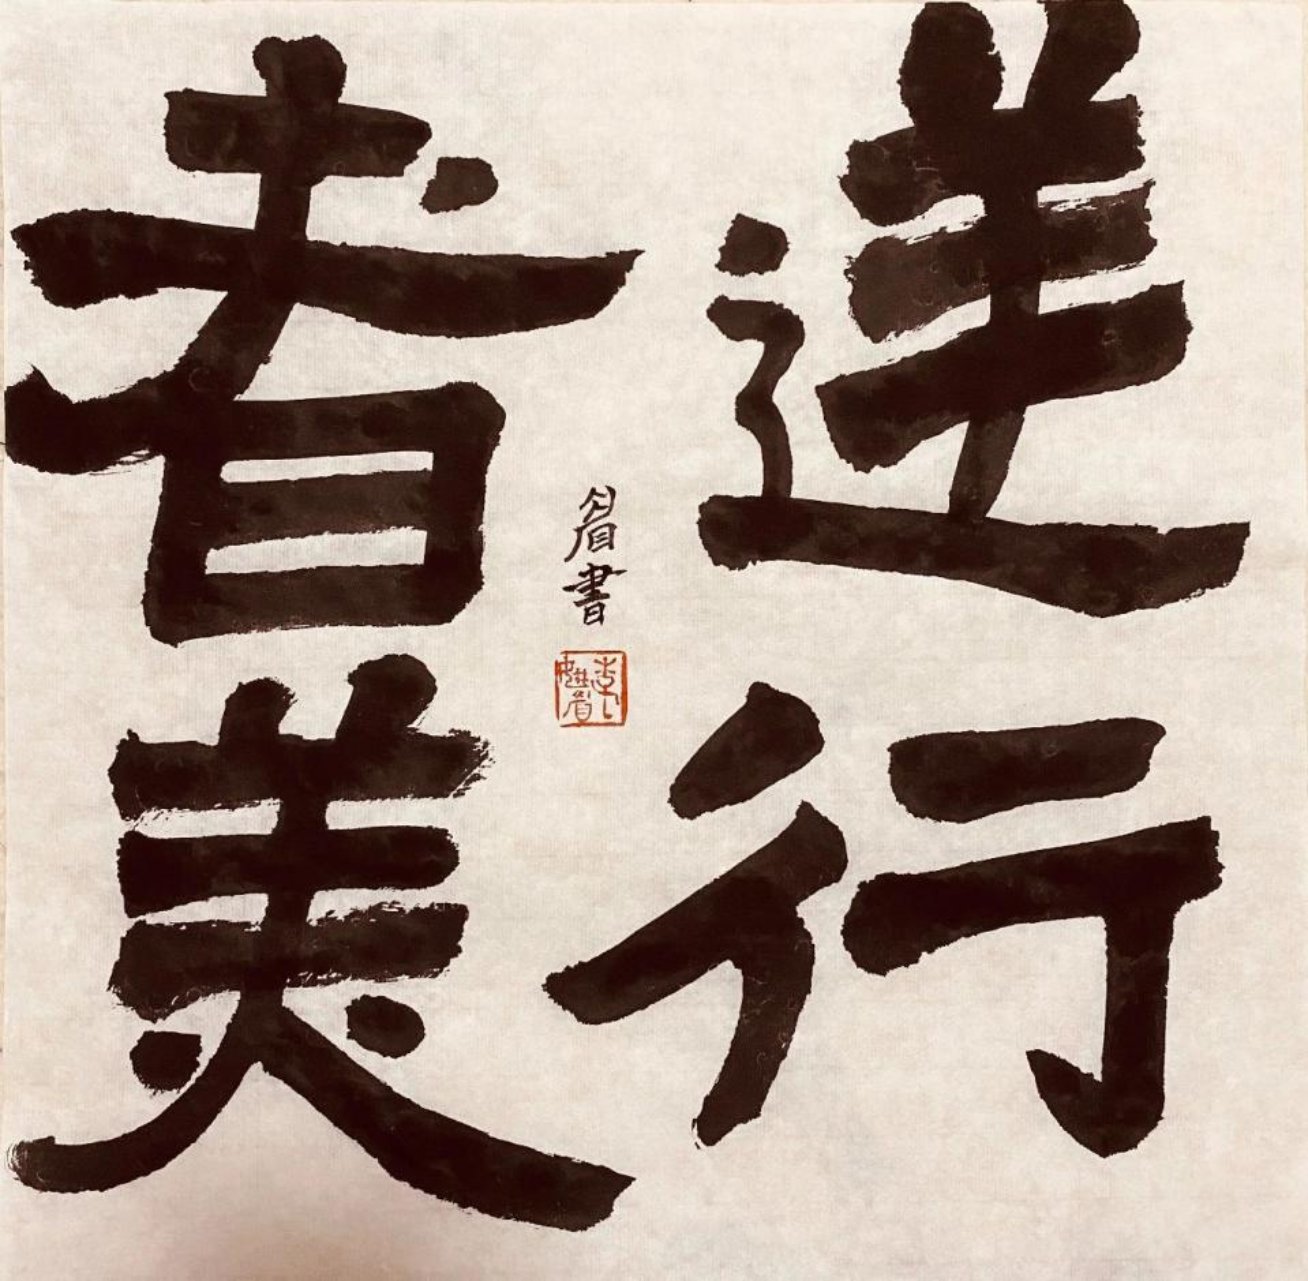 逆行
者美
眉書